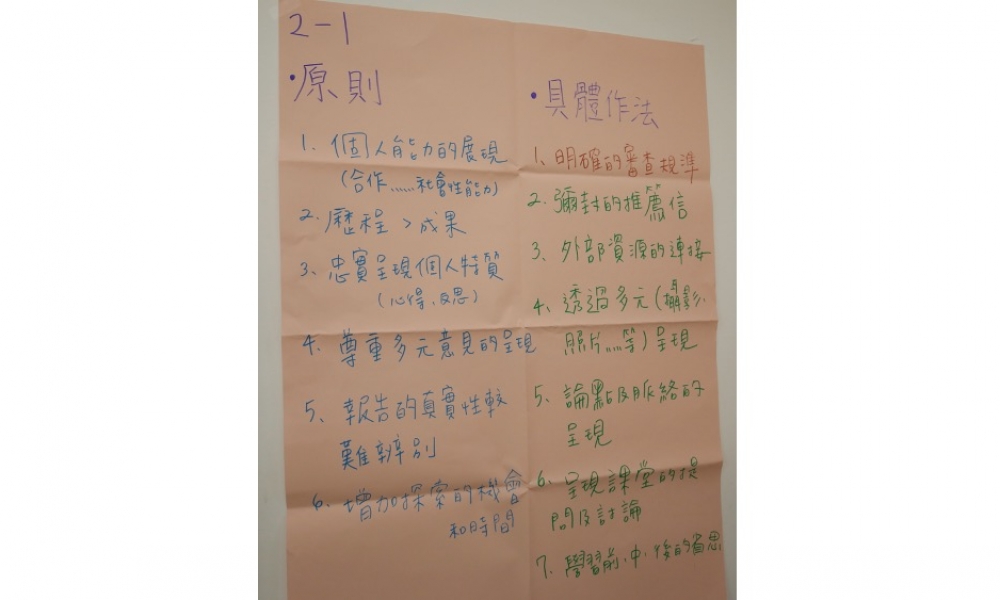 2-1
•原則
1. 個人能力的展現
(合作......社會性能力)
2. 歷程>成果
3、忠實呈現個人特質
(心得、反思)
4. 尊重多元意見的呈現
5、報告的真實性較
難辨別
6. 增加探索的機會
和時間
•具體作法
1、明確的審查規準
2. 彌封的推薦信
3、外部資源的連接
4、透過多元(攝影、
照片......等)呈現
5、論點及脈絡的
呈現
6. 呈現課堂的提
問及討論
7、學習前、中、後的省思